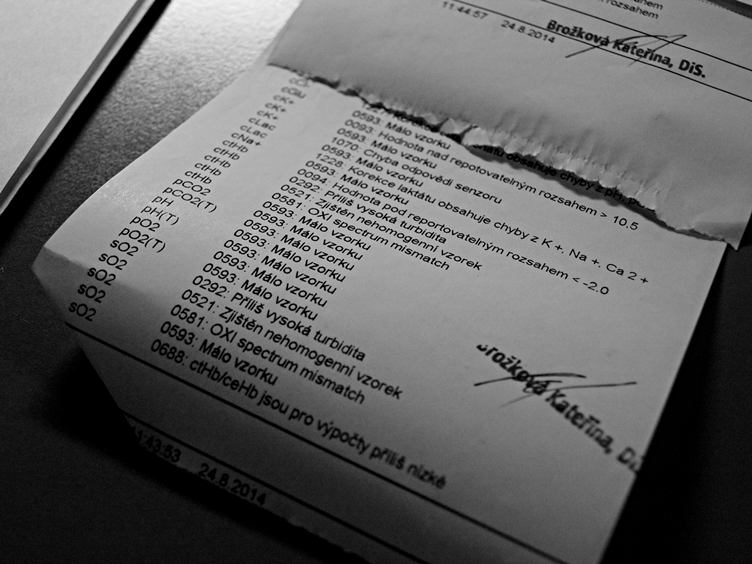 rozsahem
rozsahem
11:44:57 24.8.2014
Brožková Kateřina, DiS.
cGlu
cK+
cK+
cLac
cLac
cNa+
ctHb
ctHb
ctHb
ctHb
pCO2
pCO2(T)
pH
pH(T)
pO2
pO2(T)
sO2
sO2
sO2
sO2
0593: Málo vzorku
0093: Hodnota nad repotovatelným rozsahem > 10.5
0593: Málo vzorku
1070: Chyba odpovědi senzoru
0593: Málo vzorku
1228: Korekce laktátu obsahuje chyby z K +, Na +, Ca 2 +
0593: Málo vzorku
0094: Hodnota pod reportovatelným rozsahem < -2.0
0292: Příliš vysoká turbidita
0521: Zjištěn nehomogenní vzorek
0581: OXI spectrum mismatch
0593: Málo vzorku
0593: Málo vzorku
0593: Málo vzorku
0593: Málo vzorku
0593: Málo vzorku
0292: Příliš vysoká turbidita
0521: Zjištěn nehomogenní vzorek
0581: OXI spectrum mismatch
0593: Málo vzorku
0688: ctHb/ceHb jsou pro výpočty příliš nízké
Brožková Kateřina, Di
11:43:53 24.8.2014